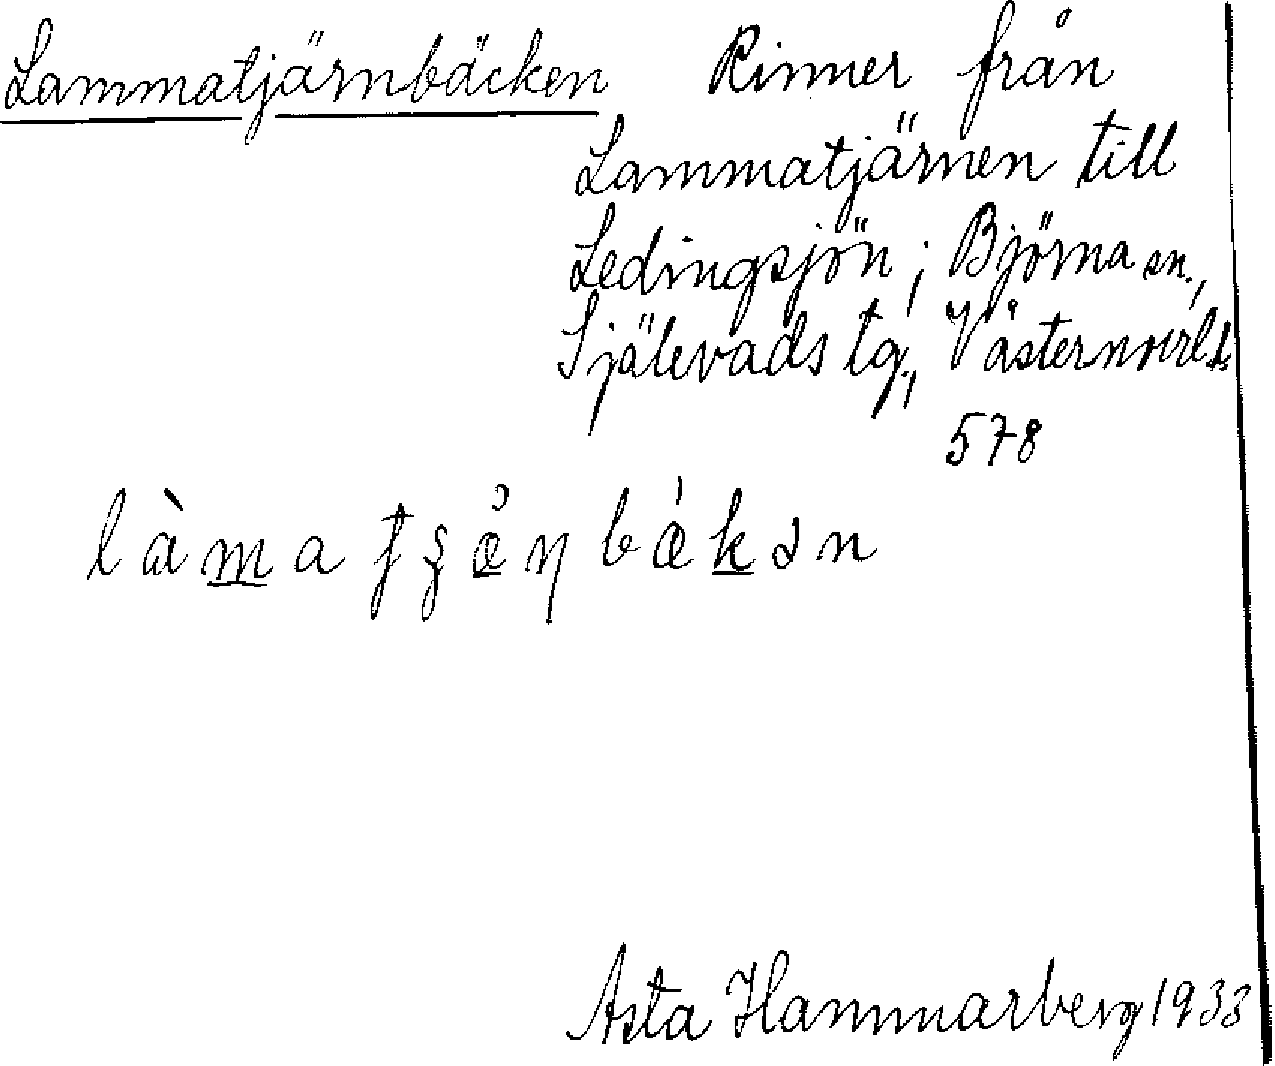 Lammatjärnbäcken Rinner från
Lammatjärnen till
Ledingsjön; Björna sn.,
Själevads tg., Västernorrl.
578
Asta Hammarberg 1933